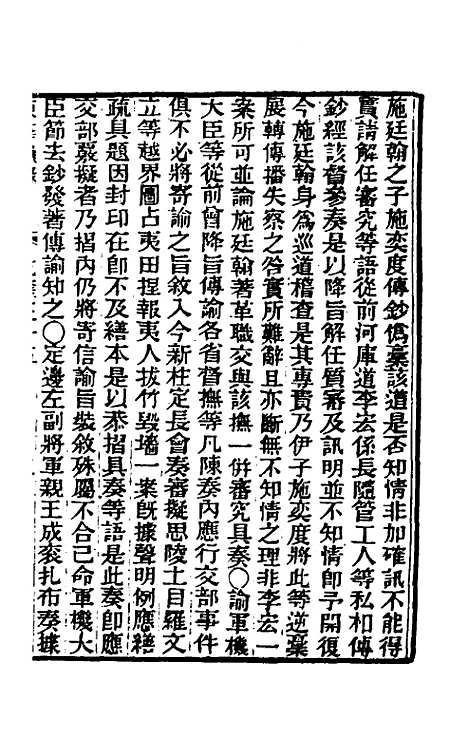 施廷翰之子施奕度傳鈔僞稾該道是否知情非加確訊不能得
實請解任審究等語從前河庫道李宏係長隨管工人等私相傳
鈔經該督參奏是以降旨解任質審及訊明並不知情卽予開復
今施廷翰身爲巡道稽查是其專責乃伊子施奕度將此等逆稾
展轉傳播失察之咎實所難辭且亦斷無不知情之理非李宏一
案所可並論施廷翰著革職交與該撫一併審究具奏〇諭軍機
大臣等從前曾降旨傳諭各省督撫等凡陳奏內應行交部事件
俱不必將寄諭之旨敘入今新柱定長會奏審擬思陵土目羅文
立等越界圖占夷田捏報夷人拔竹毀墻一案旣據聲明例應繕
疏具題因封印在卽不及繕本是以恭摺具奏等語是此奏卽應
交部覈擬者乃摺內仍將寄信諭旨裝敘殊屬不合已命軍機大
臣節去鈔發著傳諭知之〇定邊左副將軍親王成袞扎布奏據